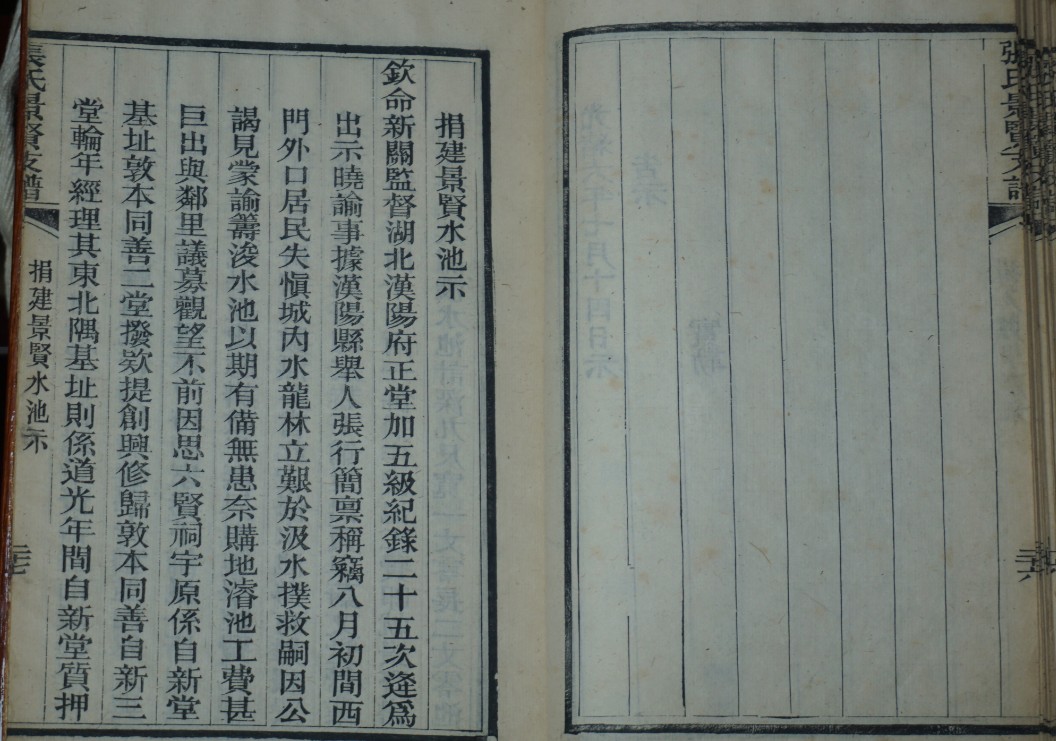 張氏景賢支譜
二六
捐建景賢水池示
欽命新關監督湖北漢陽府正堂加五級紀錄二十五次逢爲
出示曉諭事據漢陽縣舉人張行簡稟稱竊八月初間西
門外口居民失愼城內水龍林立艱於汲水撲救嗣因公
謁見蒙諭籌浚水池以期有備無患奈購地濬池工費甚
巨出與鄰里議募觀望不前因思六賢祠宇原係自新堂
基址敦本同善二堂撥欵提創興修歸敦本同善自新三
堂輪年經理其東北隅基址則係道光年間自新堂質押
張氏景賢支譜
捐建景賢水池示
二七